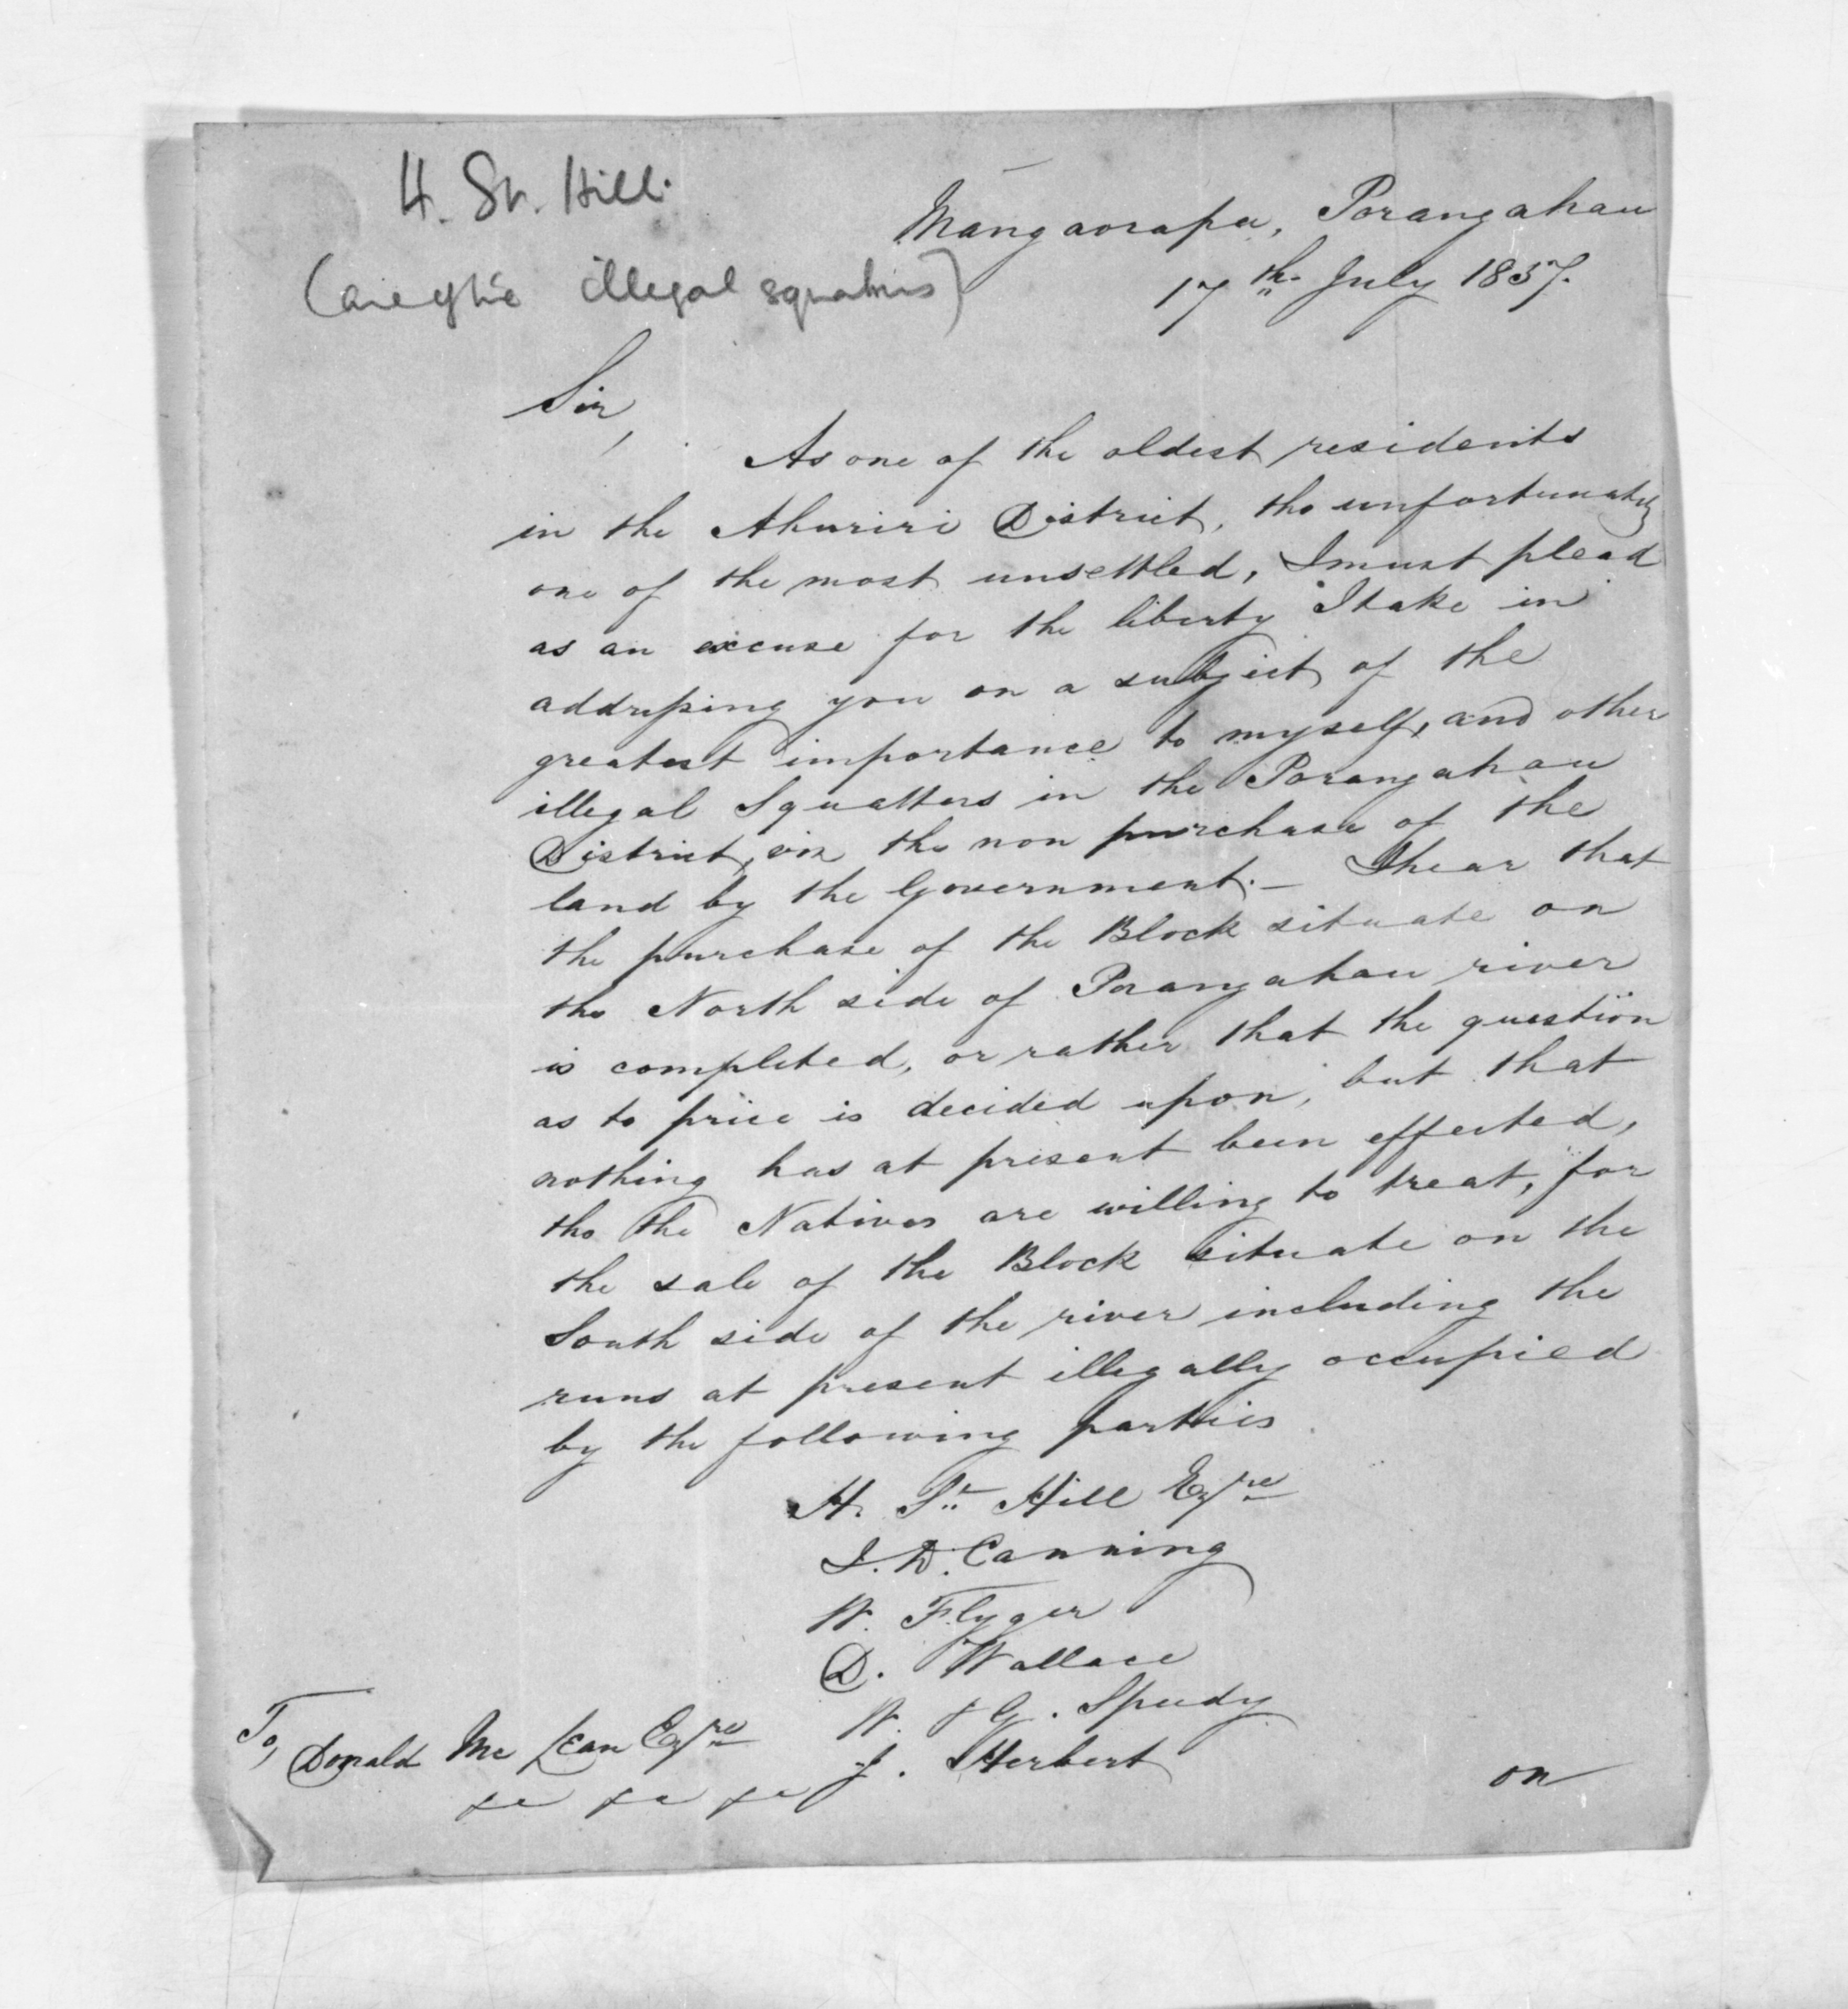 H. St. Hill.
(one of the illegal squatters)
Mangaorapa, Porangahau
17th July 1857.
Sir,
As one of the oldest residents
in the Ahuriri District, tho unfortunately
one of the most unsettled, I must plead
as an excuse for the liberty I take in
addressing you on a subject of the
greatest importance to myself, and other
illegal Squatters in the Porangahau
District, viz the non purchase of the
land by the Government. – I hear that
the purchase of the Block situate on
the North side of Porangahau river
is completed, or rather that the question
as to price is decided upon, but that
nothing has at present been effected,
tho the Natives are willing to treat, for
the sale of the Block situate on the
South side of the river including the
runs at present illegally occupied
by the following parties
H. St. Hill Esqre
J. D. Canning
W. Flyger
D. Wallace
W. & G. Speedy
J. Herbert
To, Donald McLean Esqre
&c &c &c
on